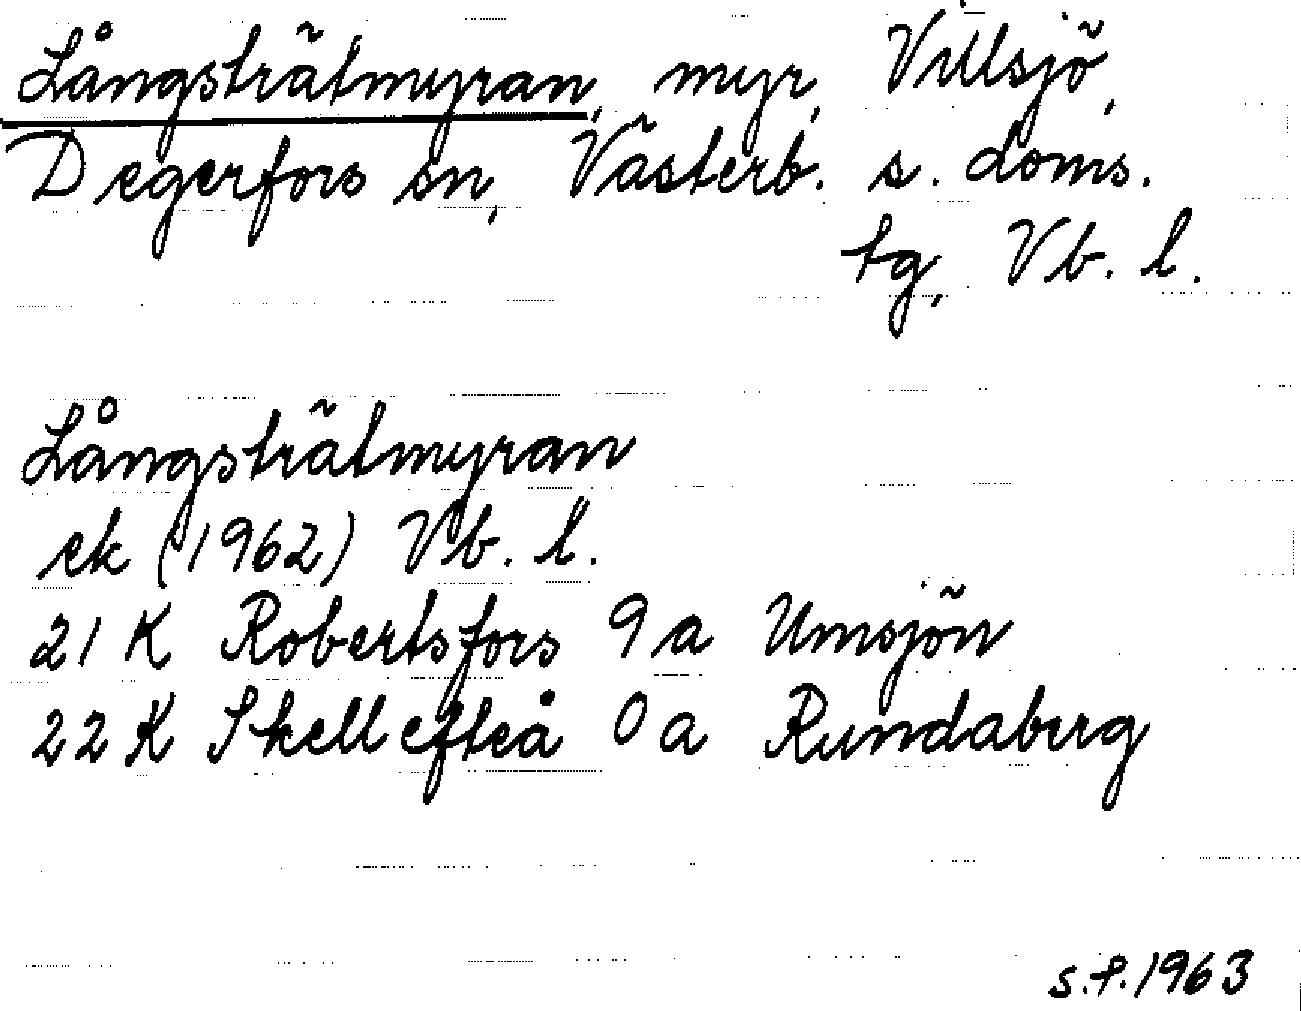 Långsträtmyran, myr, Villsjö,
Degerfors sn, Västerb. s. doms.
tg, Vb. l.
Långsträtmyran
ek (1962) Vb. l.
21 K Robertsfors 9 a Umsjön
22 K Skellefteå 0 a Rundaberg
s.f. 1963